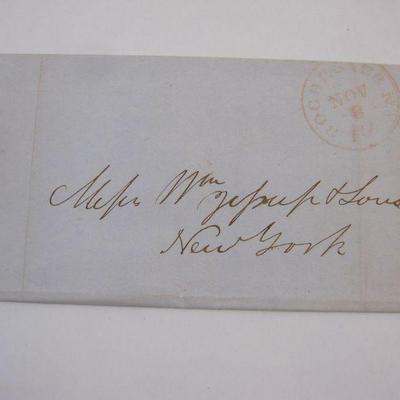 ROCHESTER N.Y.
NOV
8
Messrs Wm Jessup & Sons
New York